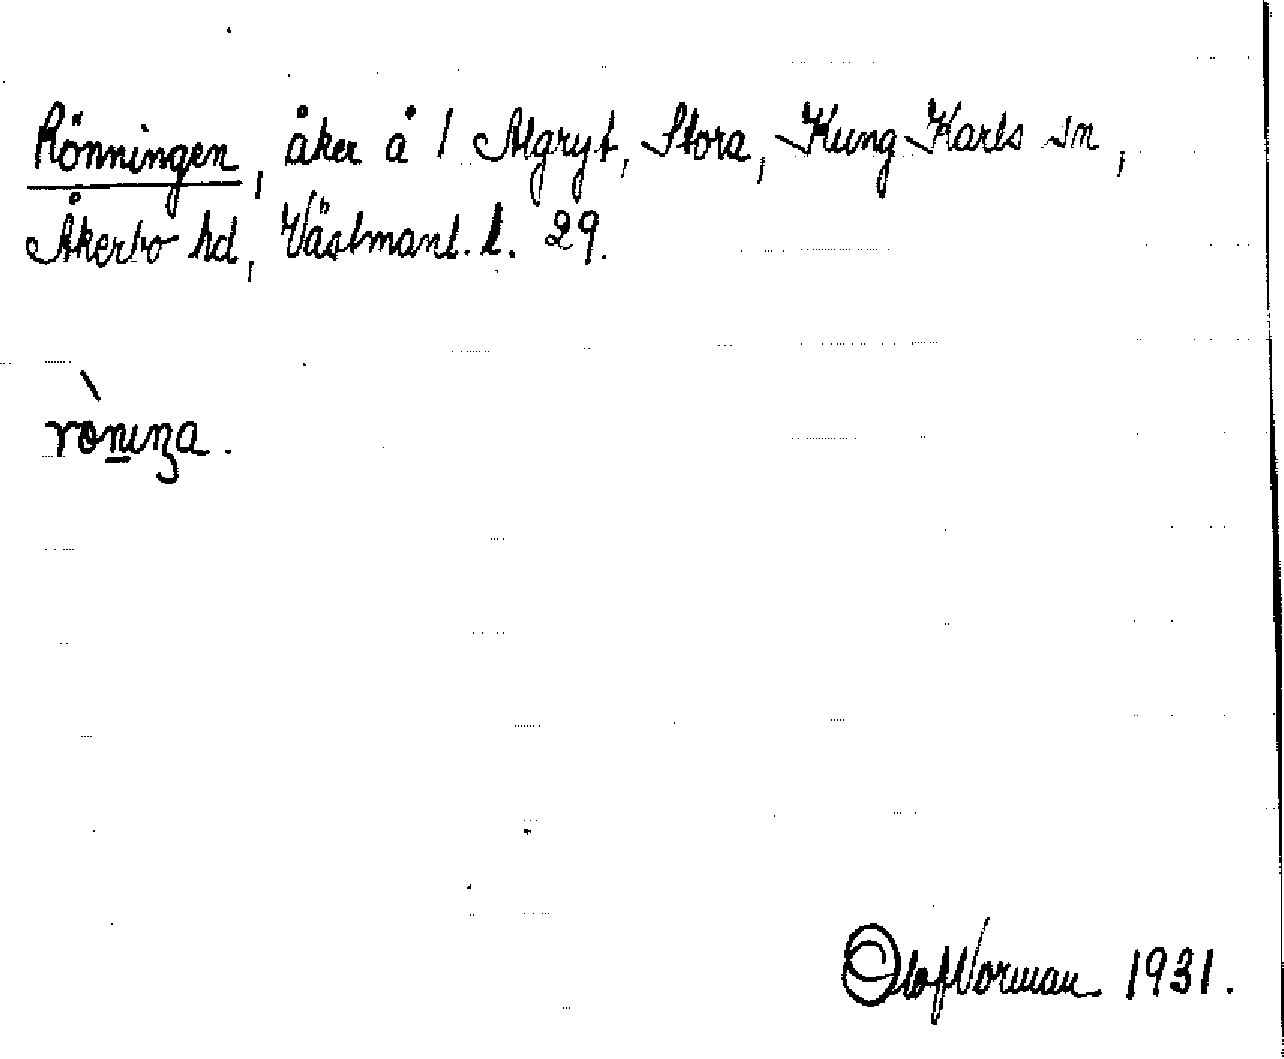 Rönningen, åker å 1 Algryt, Stora, Kung Karls sn,
Åkerbo hd, Västmanl. l. 29.
Olof Norman 1931.